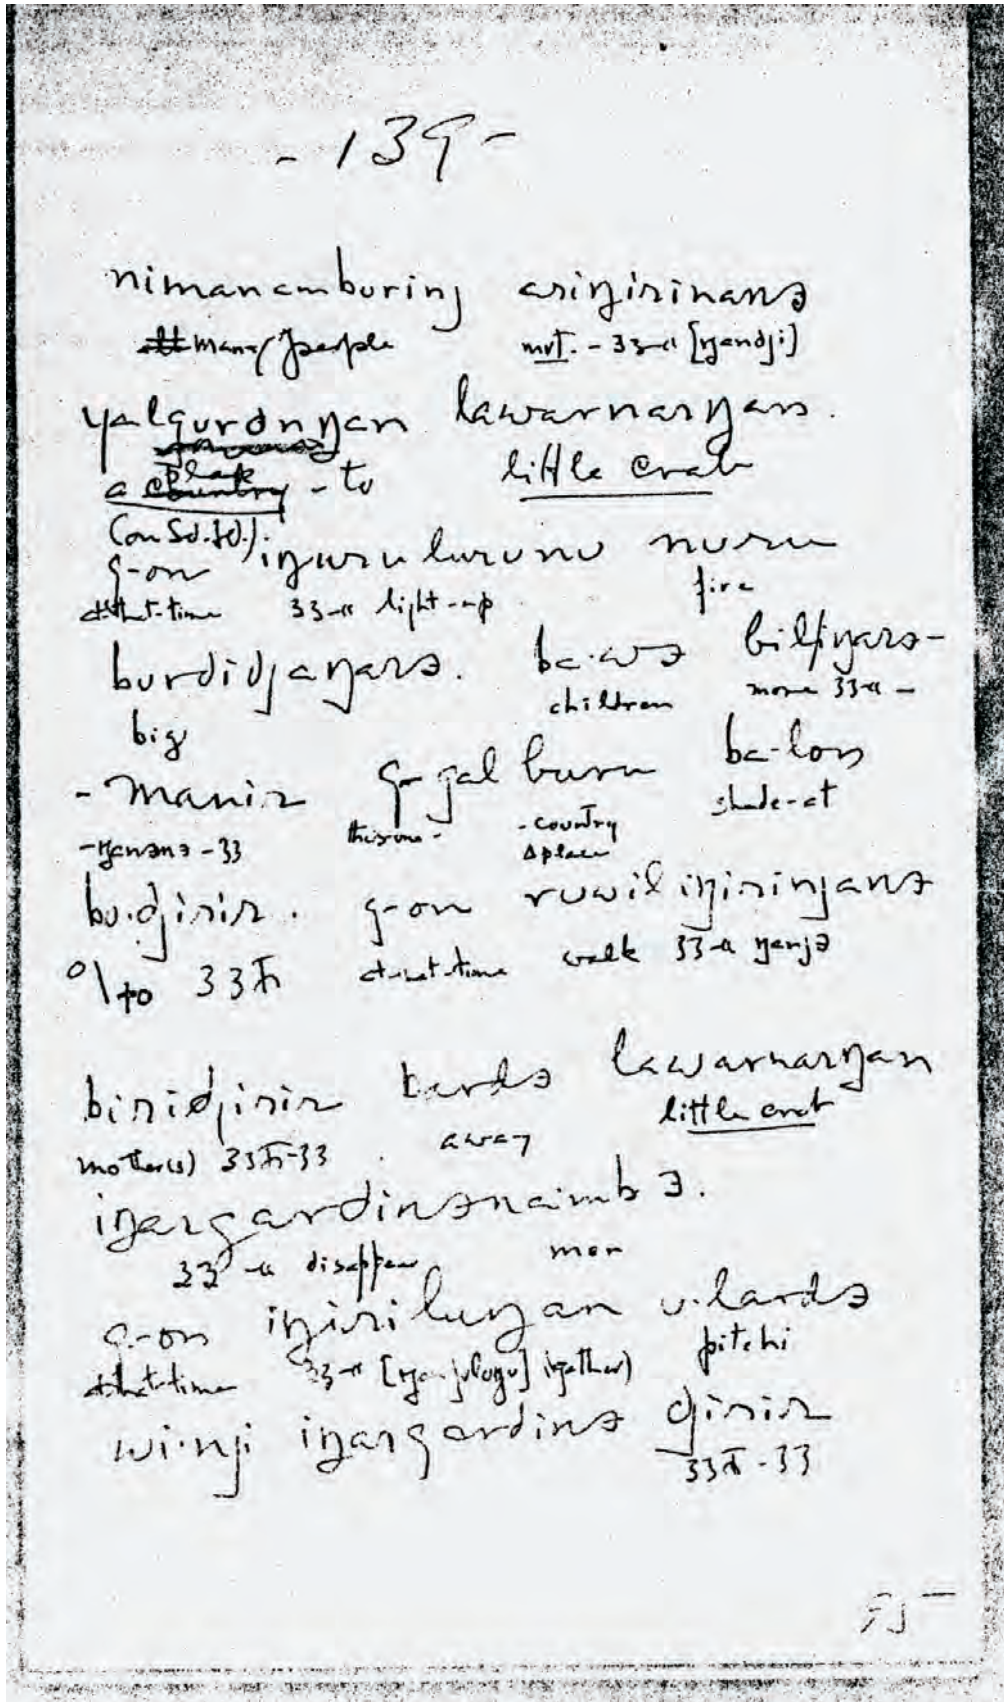 - 139 -
nimanamburinj ariŋirinanə
many people mvt. - 33-a [ŋandji]
yalgurdnŋan lawarnarŋan.
a place - to little crab
(on Sd. Id.).
g-on iŋurulurunu nuru
at that-time 33-a light-up fire
burdidjaŋarə. ba·awə bilŋiŋarə-
big children more 33-a -
- manir g-gal buru ba·lon
-ŋanənə - 33 this one - - country shade-at
Δplace
bu·djirir. g-on ruwil iŋirinjanə
to 33 at-that-time walk 33-a ŋanjə
biridjirir kardə lawarnarŋan
mother(s) 33-33 away little crab
iŋargardinənaimbə.
33-a disappear mor
g-on iŋiriluŋan u·lardə
at that-time 33-a (together) pitchi
wi·nji iŋargardinə djirir
33 - 33